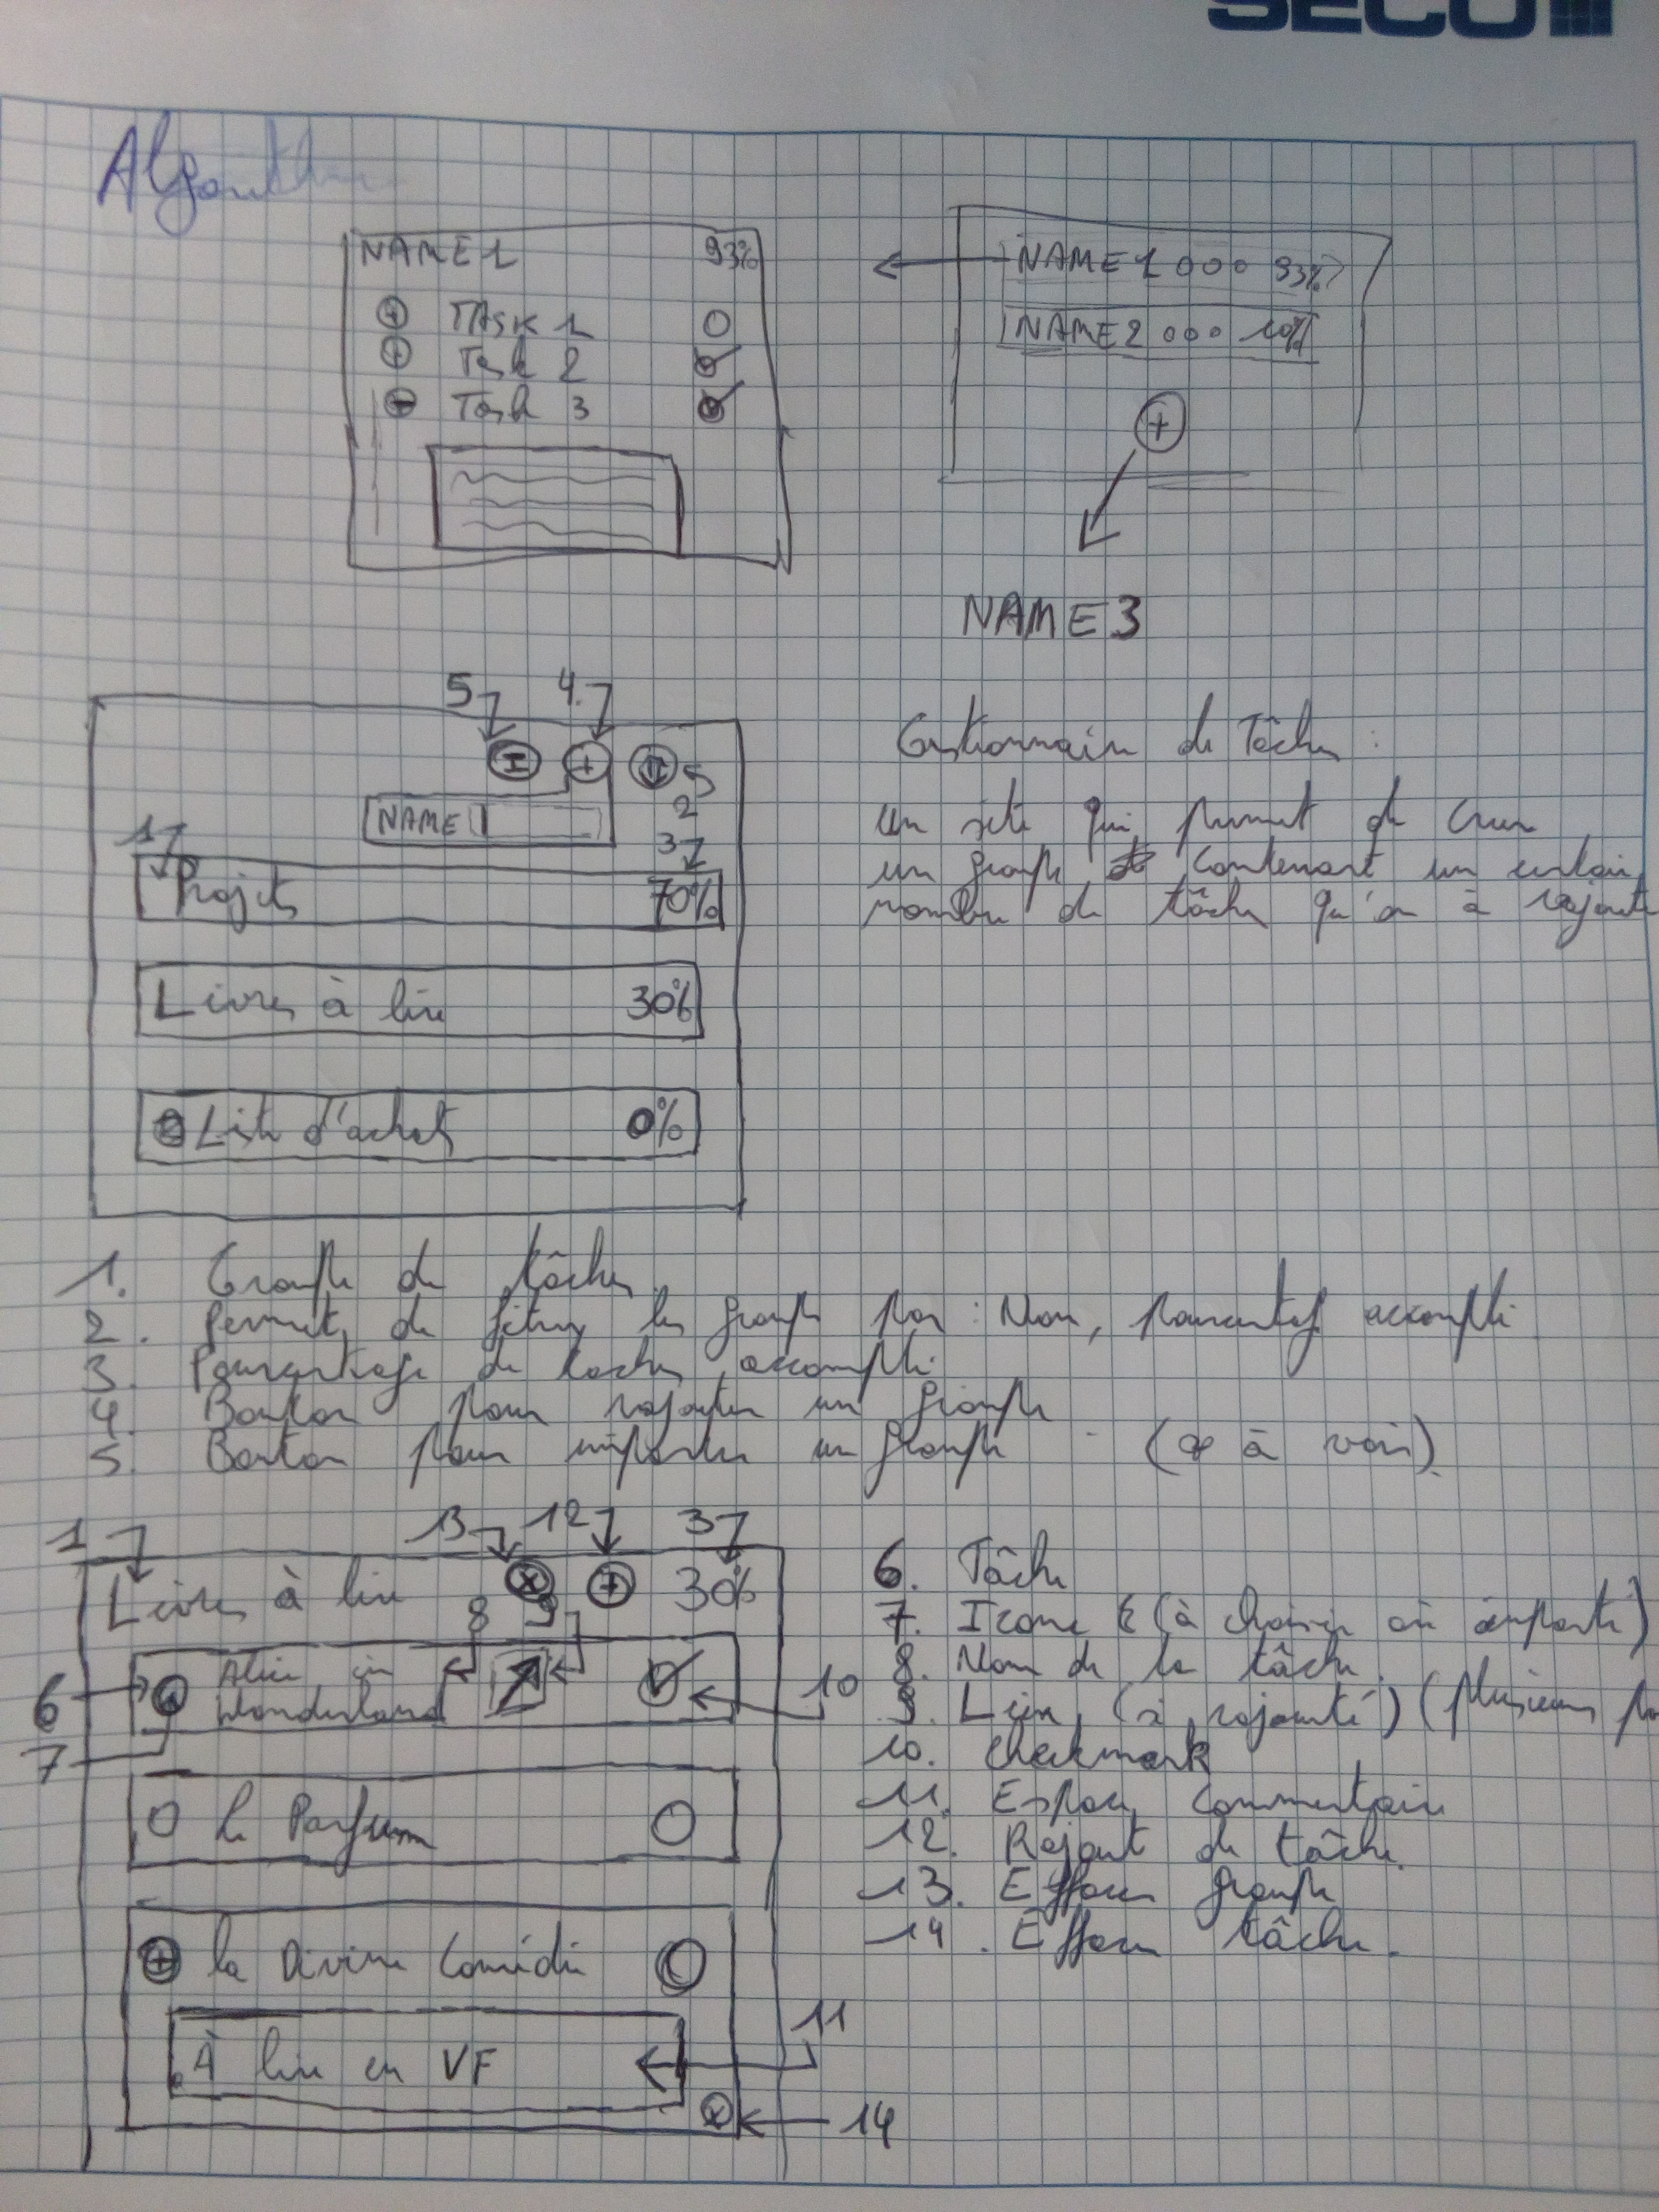 SECO
NAME 1 93%
TASK 1
Task 2
Task 3
NAME 1 000 93%
NAME 2 000 10%
NAME 3
5 4.
2
NAME
1 3
Projets 70%
Livres à lire 30%
Liste d'achats 0%
Gestionnaire de Tâches :
un site qui permet de créer
un groupe contenant un certain
nombre de tâches qu'on à rajouté
1. Groupe de tâches
2. Permet de filtrer les groupes par : Nom, pourcentage accompli
3. Pourcentage de taches accompli
4. Bouton pour rajouter un groupe
5. Bouton pour importer un groupe (à voir)
1 13 12 3
Livres à lire 30%
8 9
6 Alice in 10
Wonderland
7
Le Parfum
la Divine Comédie
À lire en VF 11
14
6. Tâche
7. Icone (à choisir où importé)
8. Nom de la tâche.
9. Lien (à rajouté) (plusieurs
10. checkmark
11. Espace commentaire
12. Rajout de tâche.
13. Effacer groupe
14. Effacer tâche.